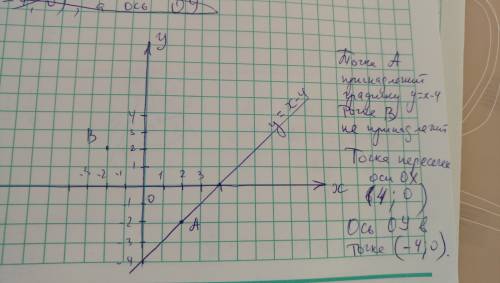 а ось ОУ
У
4
3
2
1
В
-3 -2 -1
0
1 2 3
х
-1
-2
-3
-4
А
y = x-4
Точка А
принадлежит
графику y=x-4
Точка В
не принадлежит
Точка пересечен
оси ОХ
(4; 0)
Ось ОУ в
точке (-4; 0).